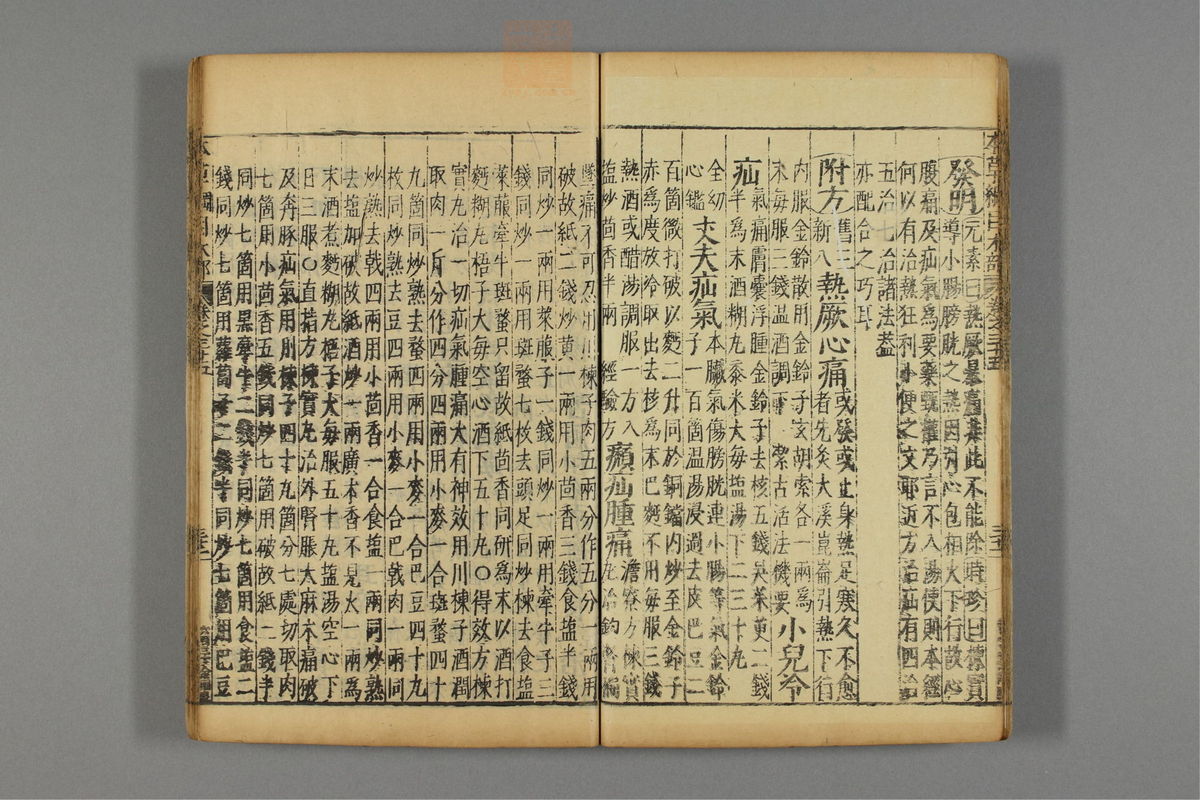 發明元素曰熱厥暴痛非此不能除時珍曰楝實
導小腸膀胱之熱因引心包相火下行故心
腹痛及疝氣爲要藥甄權乃言不入湯使則本經
何以有治熱狂利小便之文耶近方治疝有四治
五治七治諸法蓋
亦配合之巧耳
附方舊三新八熱厥心痛或發或止身熱足寒久不愈
者先灸大溪崑崙引熱下行
内服金鈴散用金鈴子玄胡索各一兩爲
末每服三錢温酒調下 潔古活法機要小兒冷
疝氣痛膚囊浮腫金鈴子去核五錢吳茱萸二錢
半爲末酒糊丸黍米大每塩湯下二三十丸
全幼
心鑑丈夫疝氣本臟氣傷膀胱連小腸等氣金鈴
子一百箇温湯浸過去皮巴豆二
百箇微打破以麪二升同於銅鐺内炒至金鈴子
赤爲度放冷取出去核爲末巴麪不用每服三錢
熱酒或醋湯調服一方入
塩炒茴香半兩 經驗方㿗疝腫痛澹寮方楝實
丸治釣腎偏
墜痛不可忍用川楝子肉五兩分作五分一兩用
破故紙二錢炒黄一兩用小茴香三錢食塩半錢
同炒一兩用萊菔子一錢同炒一兩用牽牛子三
錢同炒一兩用斑蝥七枚去頭足同炒楝去食塩
萊菔牽牛斑蝥只留故紙茴香同研爲末以酒打
麪糊丸梧子大每空心酒下五十丸〇得效方楝
實丸治一切疝氣腫痛大有神效用川楝子酒潤
取肉一斤分作四分四兩用小麥一合斑蝥四十
九箇同炒熟去蝥四兩用小麥一合巴豆四十九
枚同炒熟去豆四兩用小麥一合巴戟肉一兩同
炒熟去戟四兩用小茴香一合食塩一兩同炒熟
去塩加破故紙酒炒一兩廣木香不見火一兩爲
末酒煮麪糊丸梧子大每服五十丸塩湯空心下
日三服〇直指方楝實丸治外腎脹大麻木痛破
及奔豚疝氣用川楝子四十九箇分七處切取肉
七箇用小茴香五錢同炒七箇用破故紙二錢半
同炒七箇用黑牽牛二錢半同炒七箇用食塩二
錢同炒七箇用蘿蔔子二錢半同炒七箇用巴豆
本草綱目木部 卷之三十五
本草綱目木部 卷之三十五